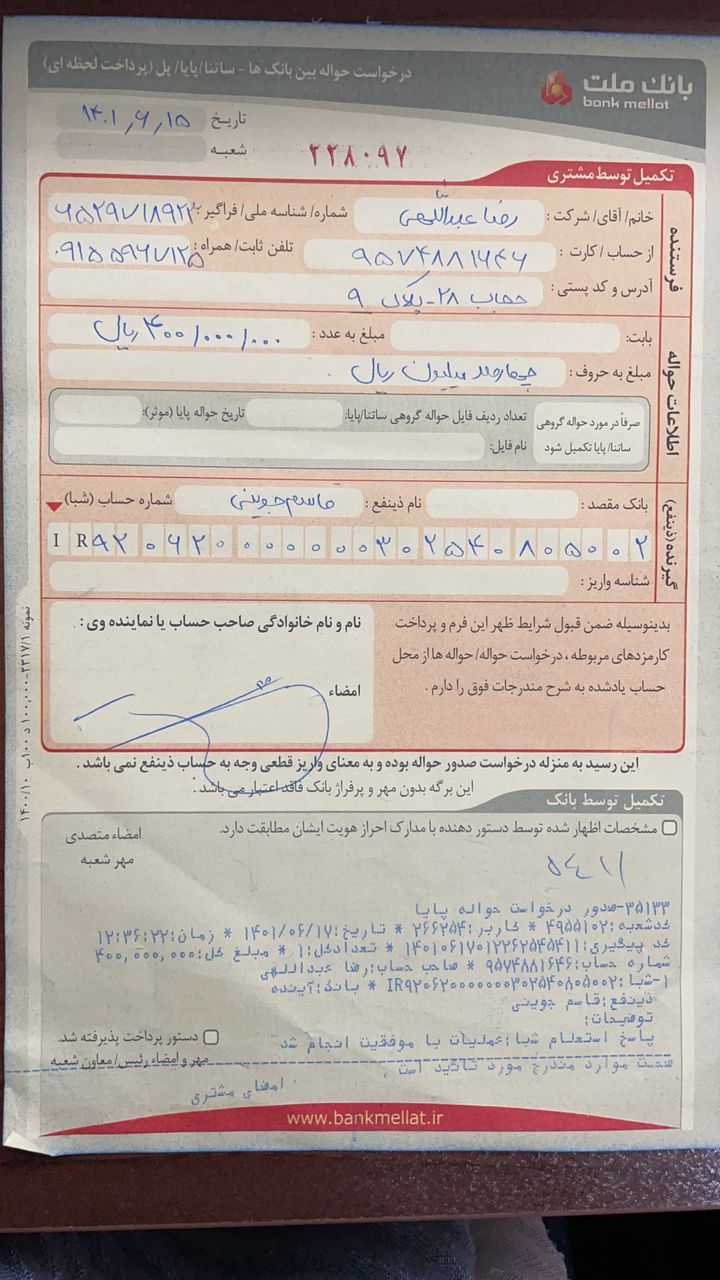 بانک ملت
bank mellat
درخواست حواله بین بانک ها - ساتنا/پایا/ پل (پرداخت لحظه ای)
تاریخ ۱۴۰۱٫۶٫۱۵
شعبه
۲۲۸۰۹۷
تکمیل توسط مشتری
فرستنده
خانم/ آقای/ شرکت : رضا عبداللهی شماره/ شناسه ملی/ فراگیر :
از حساب / کارت : ۹۵۷۴۸۸۱۶۴۶ تلفن ثابت/ همراه : ۰۹۱۵۵۹۶۷۱۲۵
آدرس و کد پستی : حجاب ۲۸- پلاک ۹
اطلاعات حواله
بابت: مبلغ به عدد : ۴۰۰/۰۰۰/۰۰۰ ریال
مبلغ به حروف : چهارصد میلیون ریال .
صرفاً در مورد حواله گروهی ساتنا/ پایا تکمیل شود
تعداد ردیف فایل حواله گروهی ساتنا/پایا: تاریخ حواله پایا (موثر):
نام فایل:
گیرنده (ذینفع)
بانک مقصد : نام ذینفع : قاسم جوینی شماره حساب (شبا)
IR۹۲۰۶۲۰۰۰۰۰۰۰۰۳۰۲۵۴۰۸۰۵۰۰۲
شناسه واریز :
بدینوسیله ضمن قبول شرایط ظهر این فرم و پرداخت
کارمزدهای مربوطه ، درخواست حواله/ حواله ها از محل
حساب یادشده به شرح مندرجات فوق را دارم .
نام و نام خانوادگی صاحب حساب یا نماینده وی :
امضاء
این رسید به منزله درخواست صدور حواله بوده و به معنای واریز قطعی وجه به حساب ذینفع نمی باشد .
این برگه بدون مهر و پرفراژ بانک فاقد اعتبار می باشد .
نمونه ۲۳۱۷/۱-۱۰۰,۰۰۰ د ۱۰۰ب ۱۴۰۰/۱۰
تکمیل توسط بانک
مشخصات اظهار شده توسط دستور دهنده با مدارک احراز هویت ایشان مطابقت دارد.
امضاء متصدی
مهر شعبه
۳۵۱۳۳-صدور درخواست حواله پایا
کدشعبه:۴۹۵۵۱۰۲ * کاربر:۲۶۶۲۵۴ * تاریخ:۱۴۰۱/۰۶/۱۷ * زمان:۱۲:۳۶:۲۲
کد پیگیری:۱۴۰۱۰۶۱۷۰۱۲۲۶۲۵۴۵۴۱۱ * تعدادکل:۱ * مبلغ کل:۴۰۰,۰۰۰,۰۰۰
شماره حساب:۹۵۷۴۸۸۱۶۴۶ * صاحب حساب:رضا عبداللهی
۱-شبا:IR۹۲۰۶۲۰۰۰۰۰۰۰۰۳۰۲۵۴۰۸۰۵۰۰۲ * بانک:آینده
ذینفع:قاسم جوینی
توضیحات:
پاسخ استعلام شبا:عملیات با موفقیت انجام شد
صحت موارد مندرج مورد تائید است .
امضای مشتری
دستور پرداخت پذیرفته شد.
مهر و امضاء رئیس/ معاون شعبه
www.bankmellat.ir